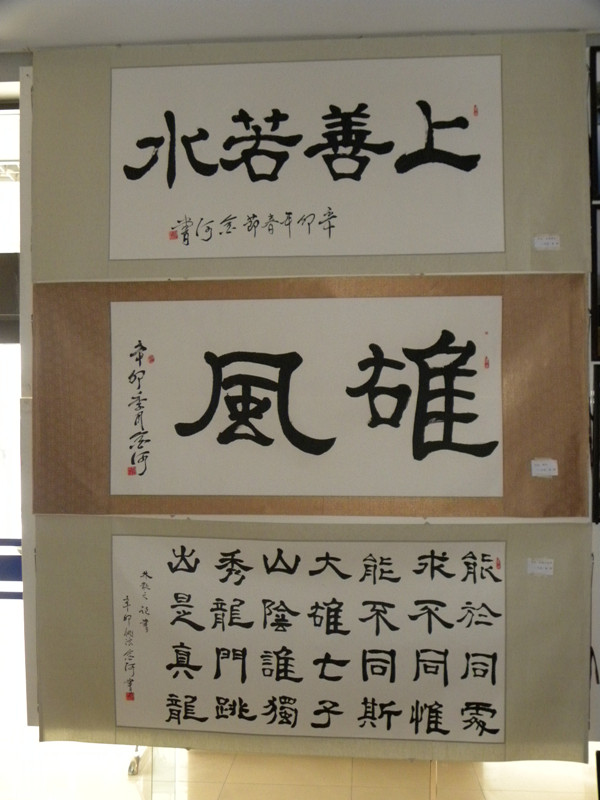 上善若水
辛卯年春節念河書
雄風
辛卯 月念河
能於同處
求不同惟
能不同斯
大雄七子
山陰誰獨
秀龍門跳
出是真龍
林散之 書
辛卯 念河書